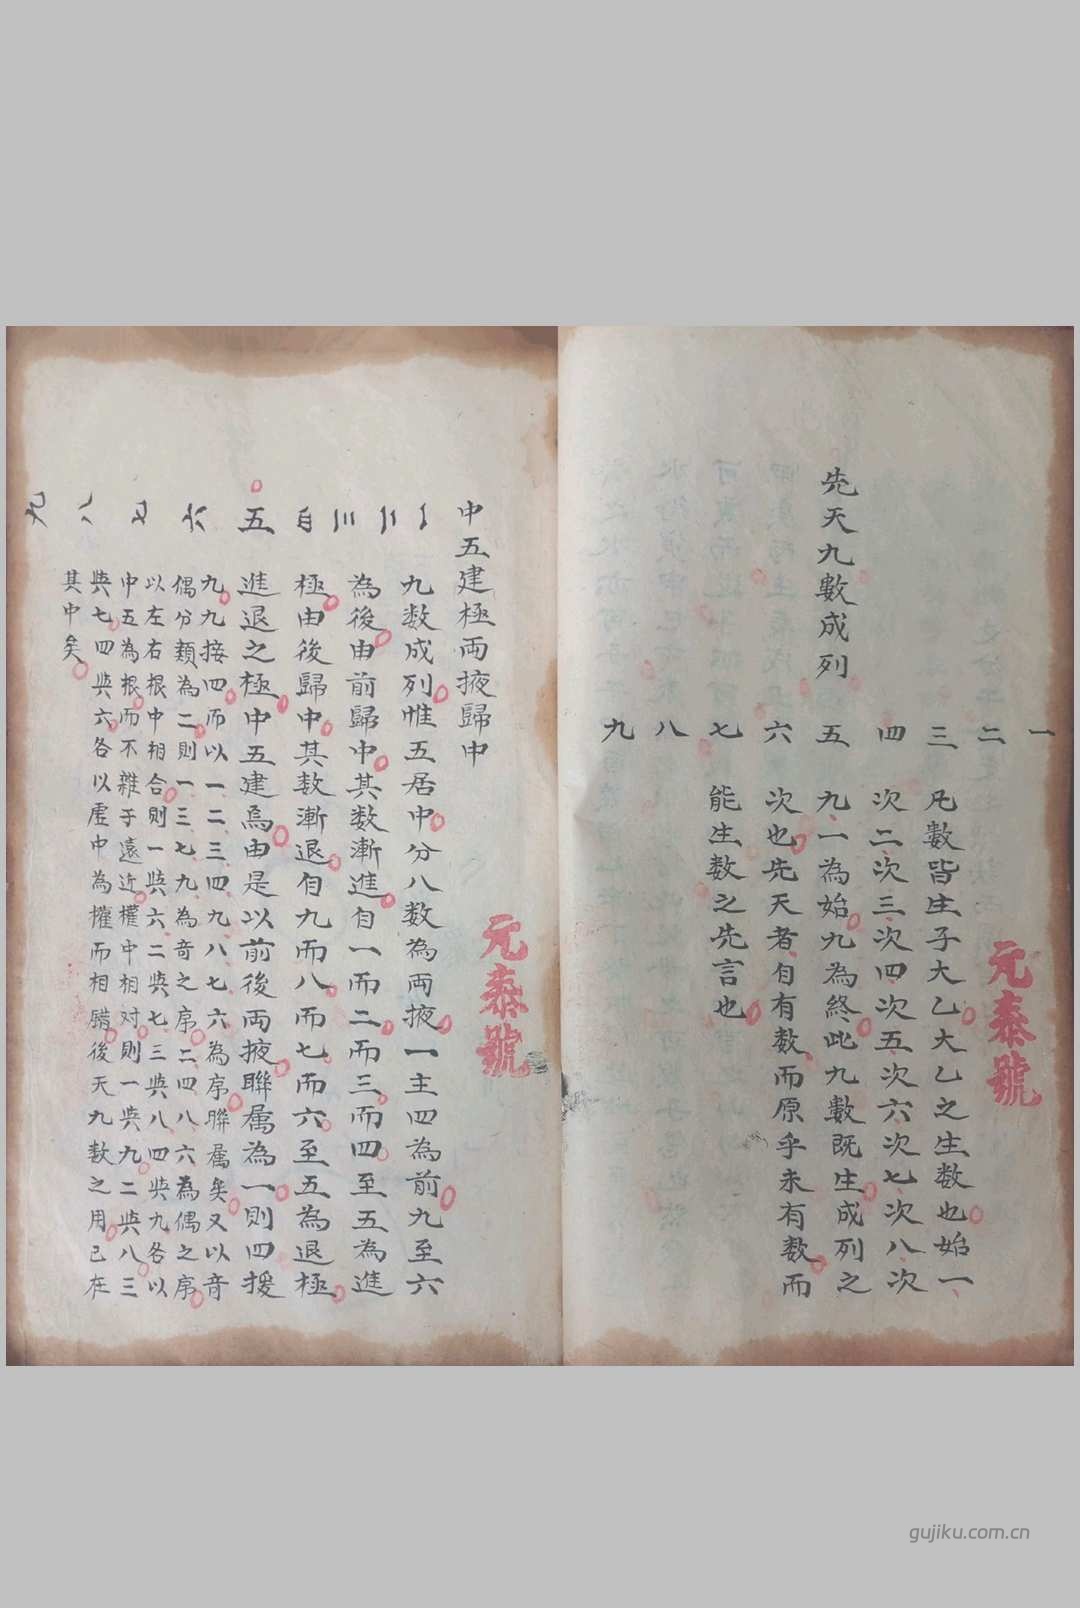 先天九數成列
一 二 三 四 五 六 七 八 九
凡數皆生子大乙大乙之生数也始一
次二次三次四次五次六次七次八次
九一為始九為終此九數既生成列之
次也先天者自有数而原乎未有数而
能生数之先言也
元泰號
中五建極両掖歸中
五
九数成列惟五居中分八数為両掖一主四為前九至六
為後由前歸中其数漸進自一而二而三而四至五為進
極由後歸中其数漸退自九而八而七而六至五為退極
進退之極中五建焉由是以前後両掖聯属為一則四援
九九接四而以一二三四九八七六為序聯属矣又以竒
偶分類為二則一三七九為竒之序二四八六為偶之序
以左右根中相合則一與六二與七三與八四與九各以
中五為根而不雜于遠近權中相对則一與九二與八三
與七四與六各以虛中為權而相錯後天九数之用已在
其中矣
元泰號
gujiku.com.cn